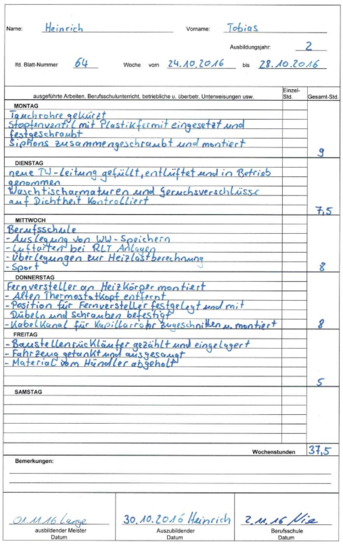 Name: Heinrich Vorname: Tobias
Ausbildungsjahr: 2
lfd. Blatt-Nummer 64 Woche vom 24.10.2016 bis 28.10.2016
ausgeführte Arbeiten, Berufsschulunterricht, betriebliche u. überbetr. Unterweisungen usw. Einzel-Std. Gesamt-Std.
MONTAG
Tauchrohre gekürzt
Stopfenventil mit Plastikfermit eingesetzt und
festgeschraubt
Siphons zusammengeschraubt und montiert
9
DIENSTAG
neue TW-Leitung gefüllt, entlüftet und in Betrieb
genommen
Waschtischarmaturen und Geruchsverschlüsse
auf Dichtheit kontrolliert
7,5
MITTWOCH
Berufsschule
- Auslegung von WW-Speichern
- Luftarten bei RLT Anlagen
- Überlegungen zur Heizlastberechnung
- Sport
8
DONNERSTAG
Fernversteller an Heizkörper montiert
- Alten Thermostatkopf entfernt
- Position für Fernversteller festgelegt und mit
Dübeln und Schrauben befestigt
- Kabelkanal für Kapillarrohr zugeschnitten u. montiert
8
FREITAG
- Baustellenrückläufer gezählt und eingelagert
- Fahrzeug getankt und ausgesaugt
- Material vom Händler abgeholt
5
SAMSTAG
Wochenstunden 37,5
Bemerkungen:
01.11.16 30.10.2016 Heinrich 2.11.16
ausbildender Meister Auszubildender Berufsschule
Datum Datum Datum